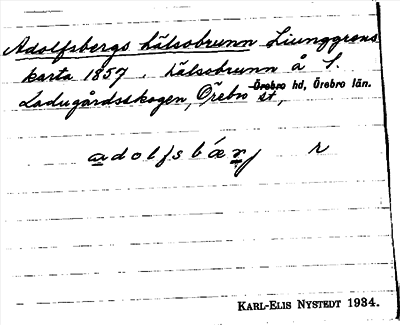 Adolfsbergs hälsobrunn Liunggrens
karta 1857. hälsobrunn å S.
Ladugårdsskogen, Örebro st,
Örebro hd, Örebro län.
adolfsbærj r
KARL-ELIS NYSTEDT 1934.